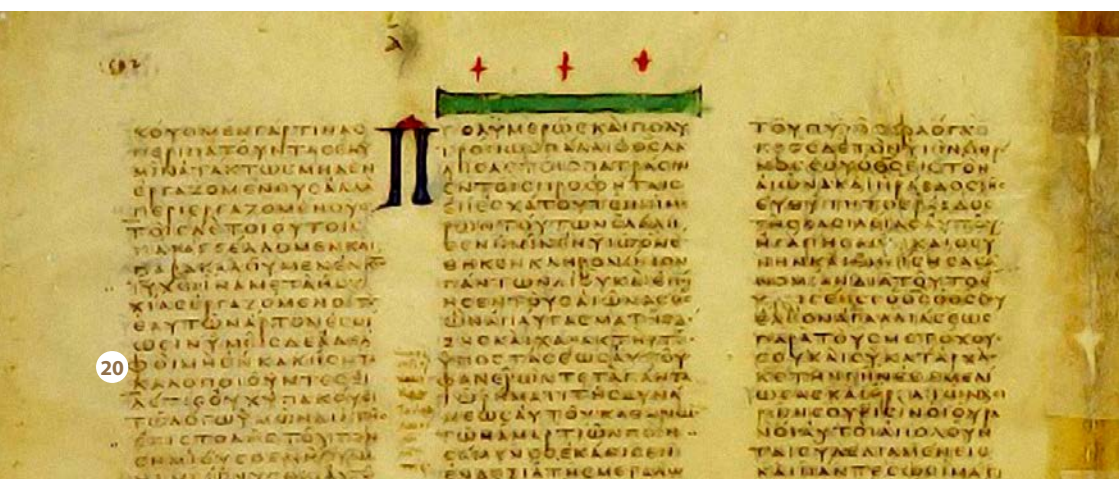 ΚΟΥΟΜΕΝΓΑΡΤΙΝΑϹ
ΠΕΡΙΠΑΤΟΥΝΤΑϹΕΝΥ
ΜΙΝΑΤΑΚΤΩϹΜΗΔΕΝ
ΕΡΓΑΖΟΜΕΝΟΥϹΑΛΛΑ
ΠΕΡΙΕΡΓΑΖΟΜΕΝΟΥϹ
ΤΟΙϹΔΕΤΟΙΟΥΤΟΙϹ
ΠΑΡΑΓΓΕΛΛΟΜΕΝΚΑΙ
ΠΑΡΑΚΑΛΟΥΜΕΝΕΝΚΩ
ΙΥΧΩΙΝΑΜΕΤΑΗϹΥ
ΧΙΑϹΕΡΓΑΖΟΜΕΝΟΙΤΟ
ΕΑΥΤΩΝΑΡΤΟΝΕϹΘΙ
ΩϹΙΝΥΜΕΙϹΔΕΑΔΕΛ
20
ΦΟΙΜΗΕΝΚΑΚΗϹΗΤΕ
ΚΑΛΟΠΟΙΟΥΝΤΕϹΕΙ
ΔΕΤΙϹΟΥΧΥΠΑΚΟΥΕΙ
ΤΩΛΟΓΩΥΜΩΝΔΙΑΤΗϹ
ΕΠΙϹΤΟΛΗϹΤΟΥΤΟΝ
ΠΟΛΥΜΕΡΩϹΚΑΙΠΟΛΥ
ΤΡΟΠΩϹΠΑΛΑΙΟΘϹΛΑ
ΛΗϹΑϹΤΟΙϹΠΑΤΡΑϹΙΝ
ΕΝΤΟΙϹΠΡΟΦΗΤΑΙϹ
ΕΠΕϹΧΑΤΟΥΤΩΝΗΜΕ
ΡΩΝΤΟΥΤΩΝΕΛΑΛΗ
ϹΕΝΗΜΙΝΕΝΥΙΩΟΝΕ
ΘΗΚΕΝΚΛΗΡΟΝΟΜΟΝ
ΠΑΝΤΩΝΔΙΟΥΚΑΙΕΠΟΙ
ΗϹΕΝΤΟΥϹΑΙΩΝΑϹΟϹ
ΩΝΑΠΑΥΓΑϹΜΑΤΗϹΔΟ
ΞΗϹΚΑΙΧΑΡΑΚΤΗΡΤΗϹ
ΥΠΟϹΤΑϹΕΩϹΑΥΤΟΥ
ΦΑΝΕΡΩΝΤΕΤΑΠΑΝΤΑ
ΤΩΡΗΜΑΤΙΤΗϹΔΥΝΑ
ΜΕΩϹΑΥΤΟΥΚΑΘΑΡΙϹΜΟ
ΤΩΝΑΜΑΡΤΙΩΝΠΟΙΗ
ϹΑΜΕΝΟϹΕΚΑΘΙϹΕΝ
ΕΝΔΕΞΙΑΤΗϹΜΕΓΑΛΩ
ΤΟΥΠΥΡΟϹΦΛΟΓΑ
ΠΡΟϹΔΕΤΟΝΥΙΟΝΟΘΡΟ
ΝΟϹϹΟΥΟΘϹΕΙϹΤΟΝ
ΑΙΩΝΑΚΑΙΗΡΑΒΔΟϹΤΗϹ
ΕΥΘΥΤΗΤΟϹΡΑΒΔΟϹ
ΤΗϹΒΑϹΙΛΕΙΑϹΑΥΤΟΥ
ΗΓΑΠΗϹΑϹΔΙΚΑΙΟϹΥ
ΝΗΝΚΑΙΕΜΙϹΗϹΑϹΑ
ΝΟΜΙΑΝΔΙΑΤΟΥΤΟΕ
ΧΡΙϹΕΝϹΕΟΘϹΟΘϹϹΟΥ
ΕΛΑΙΟΝΑΓΑΛΛΙΑϹΕΩϹ
ΠΑΡΑΤΟΥϹΜΕΤΟΧΟΥϹ
ϹΟΥΚΑΙϹΥΚΑΤΑΡΧΑϹ
ΚΕΤΗΝΓΗΝΕΘΕΜΕΛΙ
ΩϹΑϹΚΑΙΕΡΓΑΤΩΝΧΕΙ
ΡΩΝϹΟΥΕΙϹΙΝΟΙΟΥΡΑ
ΝΟΙΑΥΤΟΙΑΠΟΛΟΥΝ
ΤΑΙϹΥΔΕΔΙΑΜΕΝΕΙϹ
ΚΑΙΠΑΝΤΕϹΩϹΙΜΑΤΙ